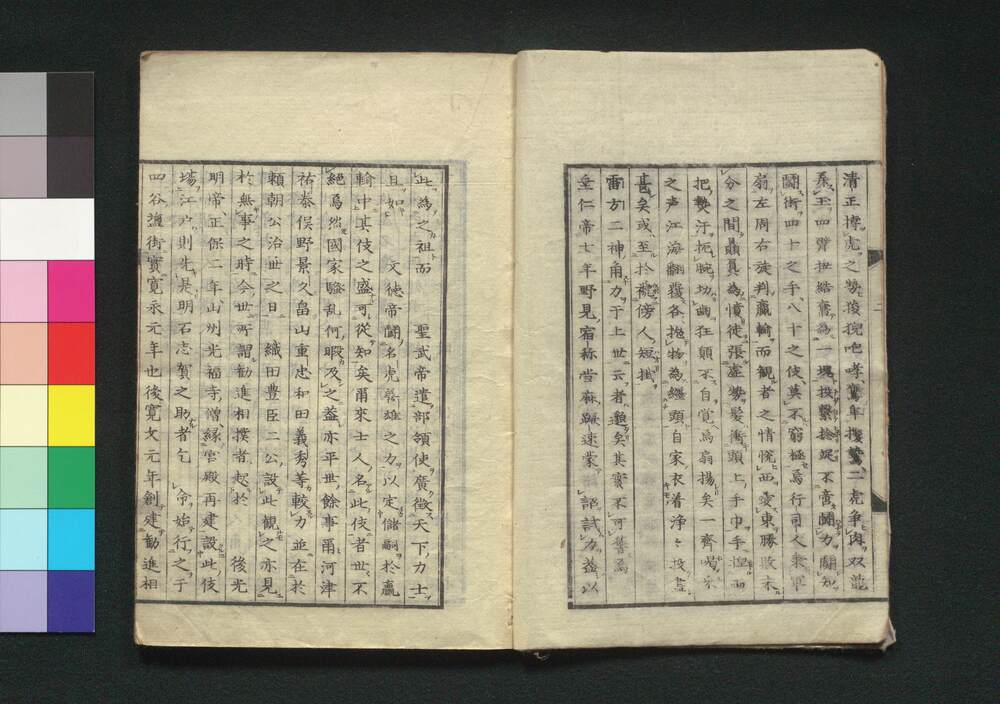 清正搏虎之勢狻猊咆哮鷲隼攫鷙二虎争肉双龍
弄玉四臂拱結奮為一塊投繋捻捉不啻鬪力鬪知
鬪術四十之手八十之伎莫不窮極焉行司人秉軍
扇左周右旋判贏輸而観者之情悦西愛東勝敗未
分之間贔負為憤徒張虚勢髪衝頭上手巾手沤両
把熱汗扼腕切齒狂顛不自覚焉扇揚矣一齊喝采
之声江海翻覆各抛物為纏頭自家衣着浄々投盡
甚矣或至於褫傍人短掛
雷方二神角力于上世云者邈矣其實不可舊焉
垂仁帝七年野見宿称當麻蹶速蒙 詔試力蓋以
此為之祖而 聖武帝遣部領使廣徴天下力士
且如 文徳帝鬪名虎發雄之力以定儲嗣於贏
輸中其伎之盛可從知矣爾来士人名此伎者世不
絕焉然國家騷乱何暇及之蓋亦平世餘事爾河津
祐泰俣野景久畠山重忠和田義秀等較力並在於
頼朝公治世之日 織田豊臣二公設此観之亦見
於無事之時今世所謂勧進相撲者起於 後光
明帝正保二年山州光福寺僧縁宮殿再建設此伎
場江戸則先是明石志賀之助者乞 令始行之于
四谷塩街實寛永元年也後寛文元年創建勧進相